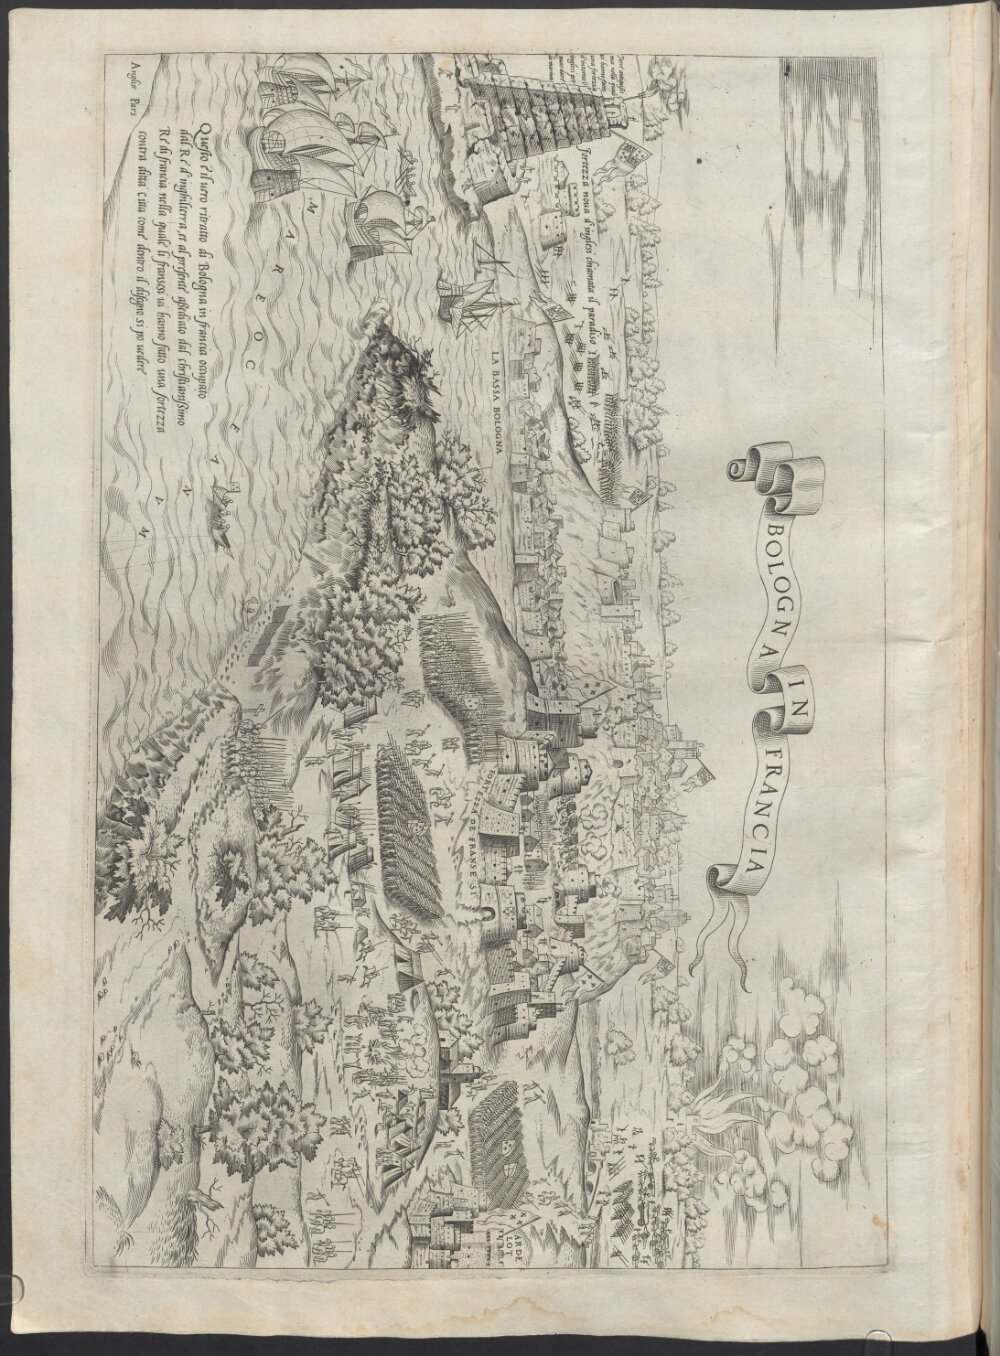 BOLOGNA IN FRANCIA
fortezza noua d'inglesi chiamata il paradiso
LA BASSA BOLOGNA
FORTEZZA DE FRANSESI
ARDE
LOT
MARE OCEANVM
Questo è il uero ritratto di Bologna in francia occupato
dal Rè d'inghilterra, et al presente assediato dal christianissimo
Rè di francia nella quale li fransesi ui hanno fatto una fortezza
contra ditta Citta come dentro il disegno si po uedere
Anglie Pars